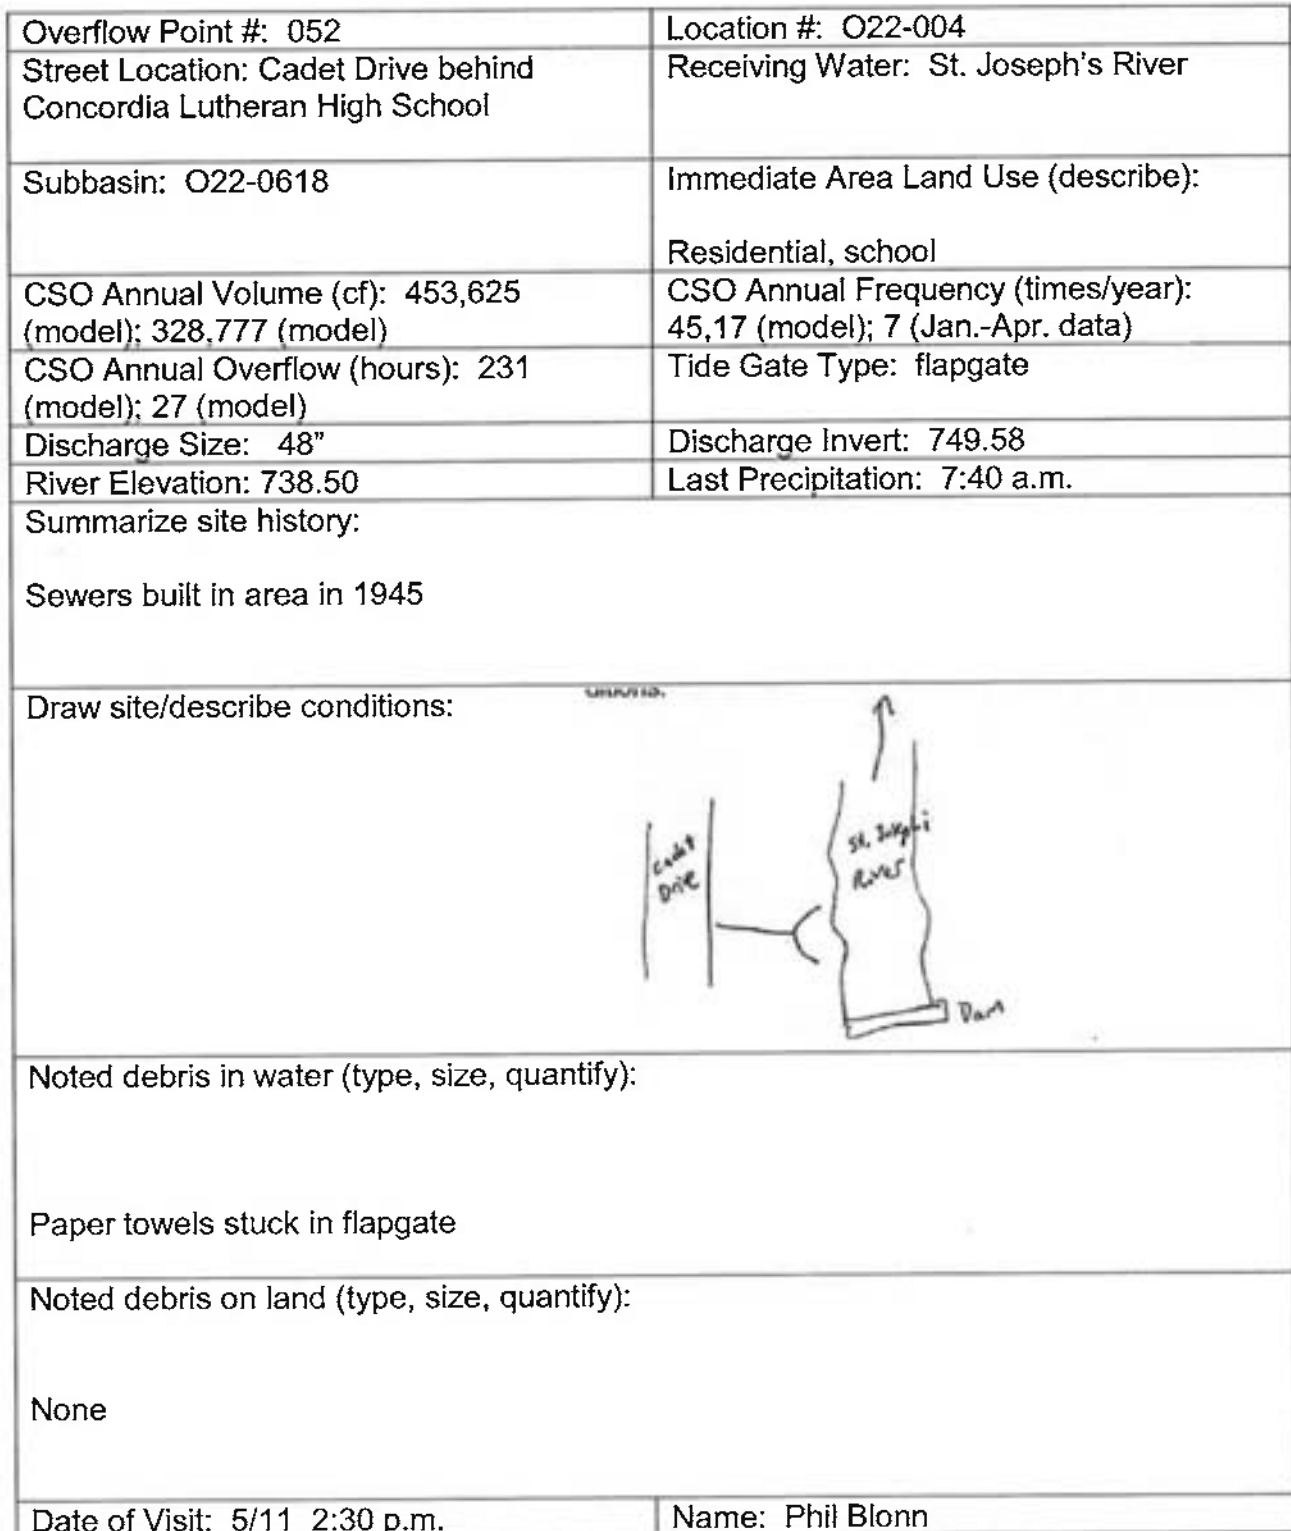 Overflow Point #: 052
Location #: O22-004
Street Location: Cadet Drive behind
Concordia Lutheran High School
Receiving Water: St. Joseph's River
Subbasin: O22-0618
Immediate Area Land Use (describe):
Residential, school
CSO Annual Volume (cf): 453,625
(model); 328,777 (model)
CSO Annual Frequency (times/year):
45,17 (model); 7 (Jan.-Apr. data)
CSO Annual Overflow (hours): 231
(model); 27 (model)
Tide Gate Type: flapgate
Discharge Size: 48”
Discharge Invert: 749.58
River Elevation: 738.50
Last Precipitation: 7:40 a.m.
Summarize site history:
Sewers built in area in 1945
Draw site/describe conditions:
Cadet
Drive
St.
River
Dam
Noted debris in water (type, size, quantify):
Paper towels stuck in flapgate
Noted debris on land (type, size, quantify):
None
Date of Visit: 5/11 2:30 p.m.
Name: Phil Blonn